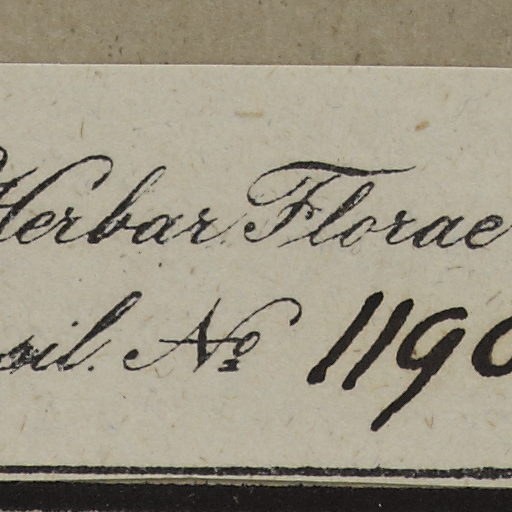 Herbar Florae
sil. No 1190